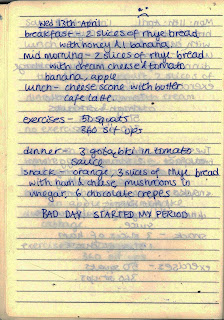 Wed 13th April
breakfast - 2 slices of rhye bread
with honey & 1 banana
mid morning - 2 slices of rhye bread
with cream cheese & tomato
banana, apple
lunch - cheese scone with butter
cafe latte.
exercises - 50 squats
360 sit ups
dinner - 3 in tomato
sauce
snack - orange, 3 slices of rhye bread
with hum & cheese, mushrooms in
vinegar, 6 chocolate crepes
BAD DAY STARTED MY PERIOD